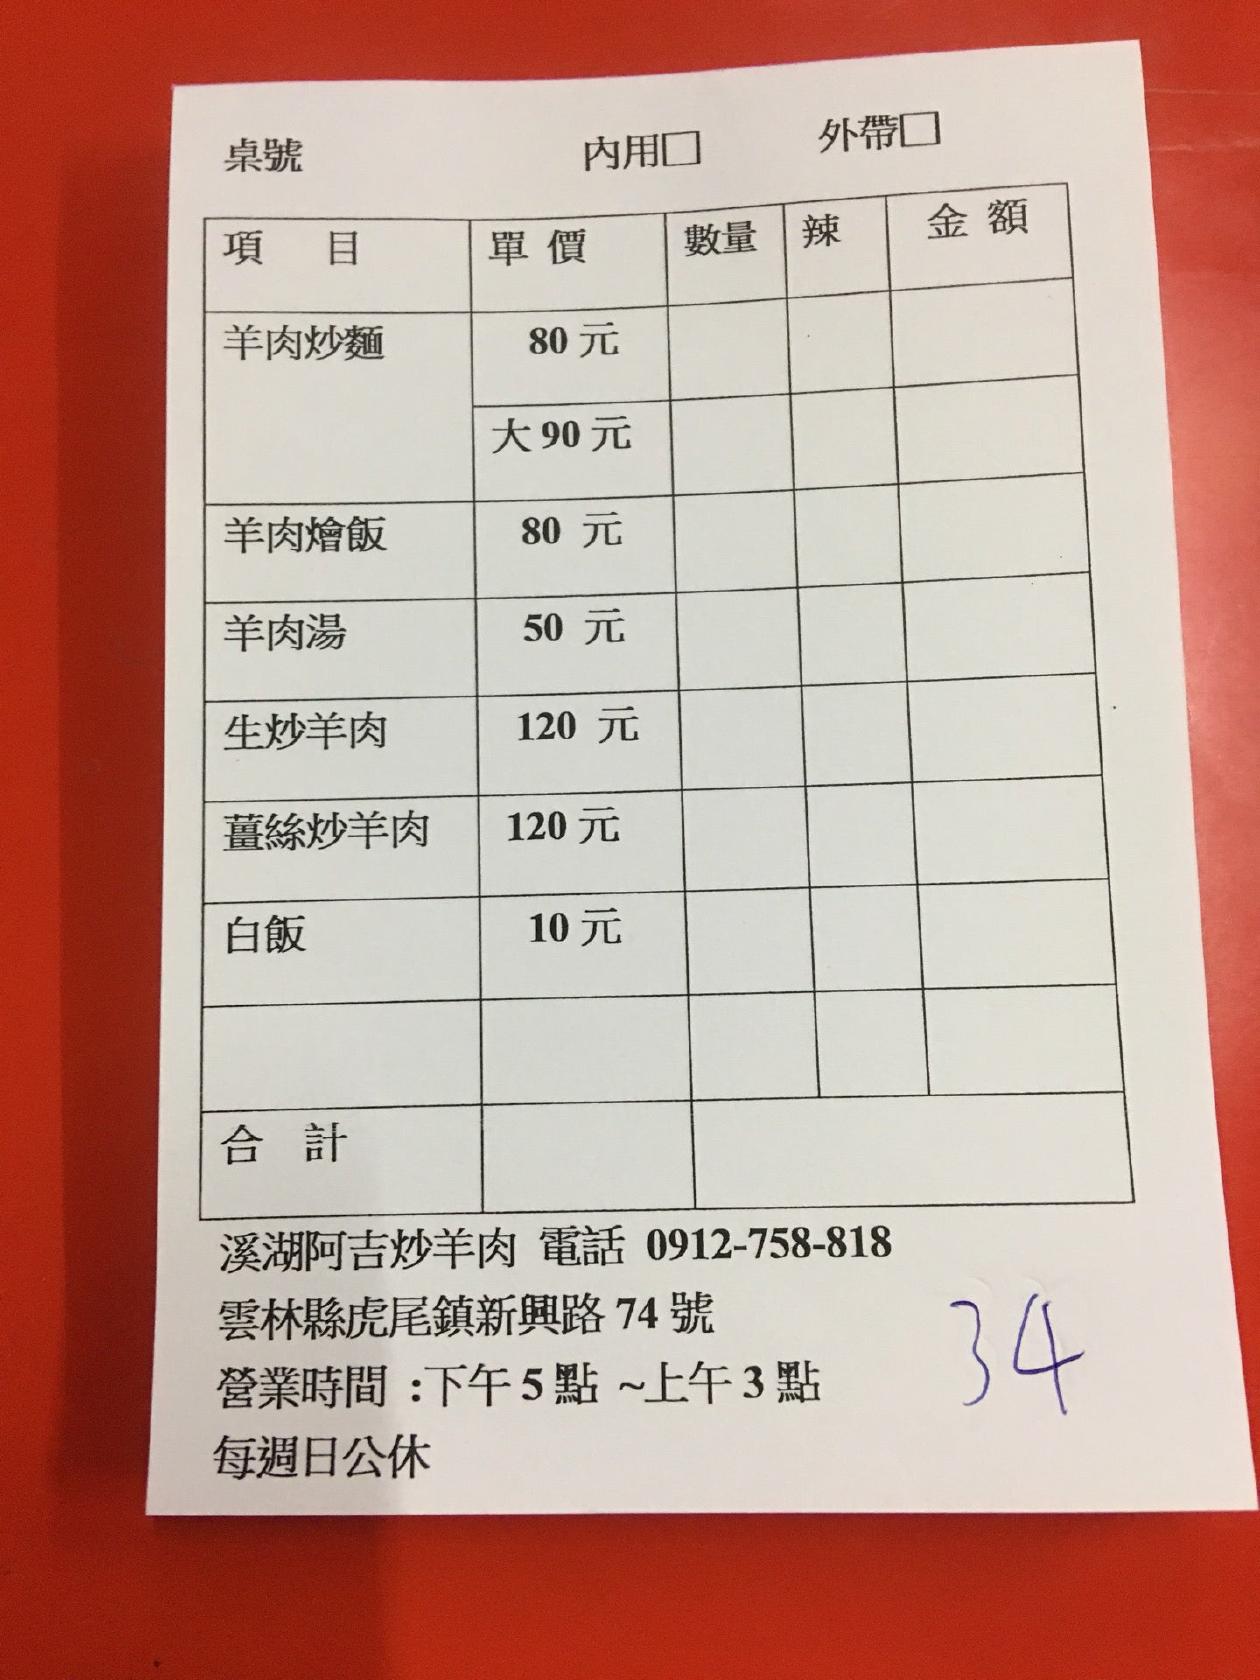 桌號 內用□ 外帶□
項 目 單 價 數量 辣 金 額
羊肉炒麵 80 元
大 90 元
羊肉燴飯 80 元
羊肉湯 50 元
生炒羊肉 120 元
薑絲炒羊肉 120 元
白飯 10 元
合 計
溪湖阿吉炒羊肉 電話 0912-758-818
雲林縣虎尾鎮新興路 74 號
營業時間 :下午 5 點 ~上午 3 點
每週日公休
34